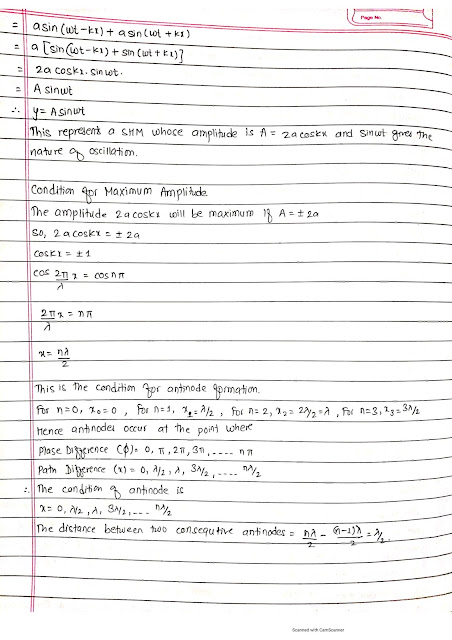 Page No.
= asin (ωt-kx) + asin (ωt + kx)
= a [sin(ωt-kx) + sin (ωt + kx)]
= 2a coskx. sinωt.
= A sinωt
∴ y= A sinωt
This represent a SHM whose amplitude is A = 2acoskx and sinωt gives the
nature of oscillation.
Condition for Maximum Amplitude
The amplitude 2acoskx will be maximum if A = ± 2a
So, 2acoskx = ± 2a
coskx = ± 1
cos 2π/λ x = cosnπ
2πx/λ = nπ
x = nλ/2
This is the condition for antinode formation.
For n=0, x₀=0 , For n=1, x₁=λ/2 , For n=2, x₂=2λ/2=λ , For n=3, x₃=3λ/2
Hence antinodes occur at the point where
Phase Difference (ϕ)= 0, π, 2π, 3π, .---- nπ
Path Difference (x) = 0, λ/2, λ, 3λ/2, .--- nλ/2
∴ The condition of antinode is
x= 0, λ/2, λ, 3λ/2, --- nλ/2
The distance between two consequtive antinodes = nλ/2 - (n-1)λ/2 = λ/2.
Scanned with CamScanner